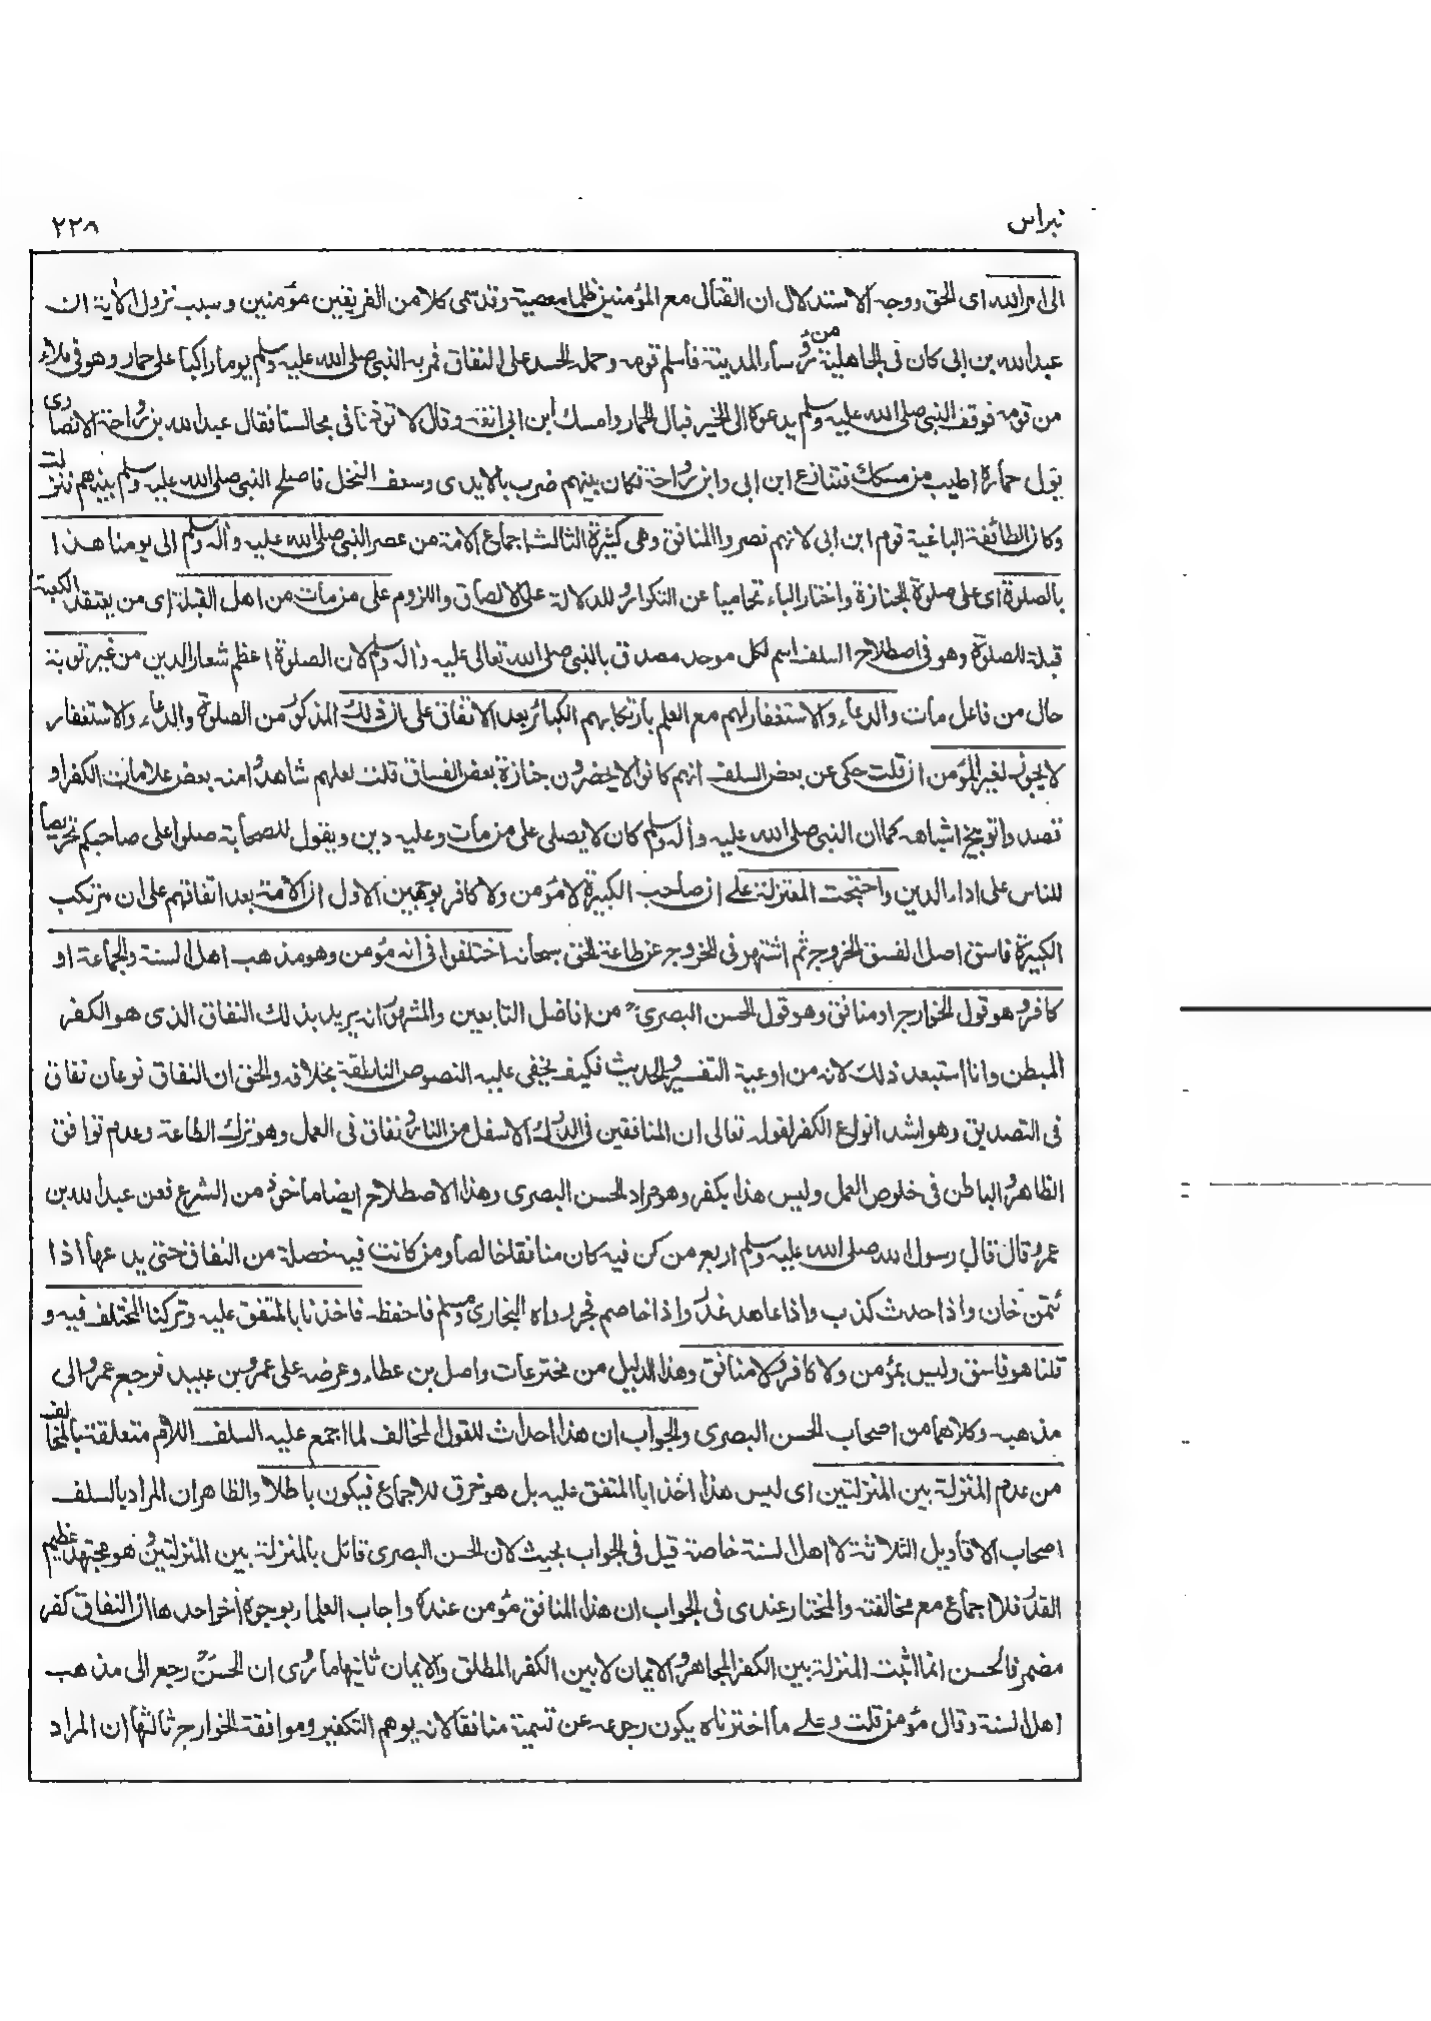 نبراس
٢٢٨
الى امر الله اى الحق ووجه الاستدلال ان القتال مع المؤمنين ظلما معصية وقد سمى كلا من الفريقين مؤمنين وسبب نزول الآية ان
عبد الله بن ابى كان فى الجاهلية من رؤساء المدينة فاسلم قومه وحمله الحسد على النفاق فمر به النبى صلى الله عليه وسلم يوما راكبا على حمار وهو فى ملاء
من قومه فوقف النبى صلى الله عليه وسلم يدعوه الى الخير فبال الحمار وامسك ابن ابى انفه وقال لا توذنا فى مجالسنا فقال عبد الله بن رواحة الانصارى
بول حماره اطيب من مسكك فتنازع ابن ابى وابن رواحة فكان بينهم ضرب بالايدى وسعف النخل فاصلح النبى صلى الله عليه وسلم بينهم فنزلت
وكان الطائفة الباغية قوم ابن ابى لانهم نصروا المنافق وهى كثيرة الثالث اجماع الامة من عصر النبى صلى الله عليه وآله وسلم الى يومنا هذا
بالصلوة اى على صلوة الجنازة واختار الباء تحاميا عن التكرار وللدلالة على الالصاق واللزوم على من مات من اهل القبلة اى من يعتقد الكعبة
قبلة للصلوة وهو فى اصطلاح السلف اسم لكل موحد مصدق بالنبى صلى الله تعالى عليه وآله وسلم لان الصلوة اعظم شعار الدين من غير توبة
حال من فاعل مات والدعاء والاستغفار لهم مع العلم بارتكابهم الكبائر بعد الاتفاق على ان ذلك المذكور من الصلوة والدعاء والاستغفار
لا يجوز لغير المؤمن ان قلت حكى عن بعض السلف انهم كانوا لا يحضرون جنازة بعض الفساق قلت لعلهم شاهدوا منه بعض علامات الكفر او
قصدوا توبيخ اشباهه كما ان النبى صلى الله عليه وآله وسلم كان لا يصلى على من مات وعليه دين ويقول للصحابة صلوا على صاحبكم تحريصا
للناس على اداء الدين واحتجت المعتزلة على ان صاحب الكبيرة لا مؤمن ولا كافر بوجهين الاول ان الامة بعد اتفاقهم على ان مرتكب
الكبيرة فاسق اصل الفسق الخروج ثم اشتهر فى الخروج عن طاعة الحق سبحانه اختلفوا فى انه مؤمن وهو مذهب اهل السنة والجماعة او
كافر وهو قول الخوارج او منافق وهو قول الحسن البصرى من افاضل التابعين والمشهور انه يريد بذلك النفاق الذى هو الكفر
المبطن وانا استبعد ذلك لانه من اوعية التفسير والحديث فكيف يخفى عليه النصوص الناطقة بخلافه والحق ان النفاق نوعان نفاق
فى التصديق وهو اشد انواع الكفر لقوله تعالى ان المنافقين فى الدرك الاسفل من النار ونفاق فى العمل وهو ترك الطاعة وعدم توافق
الظاهر والباطن فى خلوص العمل وليس هذا بكفر وهو مراد الحسن البصرى وهذا الاصطلاح ايضا ماخوذ من الشرع فعن عبد الله بن
عمرو قال قال رسول الله صلى الله عليه وسلم اربع من كن فيه كان منافقا خالصا ومن كانت فيه خصلة من النفاق حتى يدعها اذا
ئتمن خان واذا حدث كذب واذا عاهد غدر واذا خاصم فجر رواه البخارى ومسلم فاحفظه فاخذنا بالمتفق عليه وتركنا المختلف فيه و
قلنا هو فاسق وليس بمؤمن ولا كافر ولا منافق وهذا الدليل من مخترعات واصل بن عطاء وعرضه على عمرو بن عبيد فرجع عمرو الى
مذهبه وكلاهما من اصحاب الحسن البصرى والجواب ان هذا احداث للقول المخالف لما اجمع عليه السلف اللام متعلقة بالمخالف
من عدم المنزلة بين المنزلتين اى ليس هذا اخذا بالمتفق عليه بل هو خرق للاجماع فيكون باطلا والظاهر ان المراد بالسلف
اصحاب الاقاويل الثلاثة لا اهل السنة خاصة قيل فى الجواب بحث لان الحسن البصرى قائل بالمنزلة بين المنزلتين وهو مجتهد عظيم
القدر فلا اجماع مع مخالفته والمختار عندى فى الجواب ان هذا المنافق مؤمن عنده واجاب العلماء بوجوه اخر احدها ان النفاق كفر
مضمر فالحسن انما اثبت المنزلة بين الكفر المجاهر والايمان لا بين الكفر المطلق والايمان ثانيها ما روى ان الحسن رجع الى مذهب
اهل السنة وقال مؤمن قلت وعلى ما اخترناه يكون رجوعه عن تسمية منافقا لانه يوهم التكفير وموافقة الخوارج ثالثها ان المراد